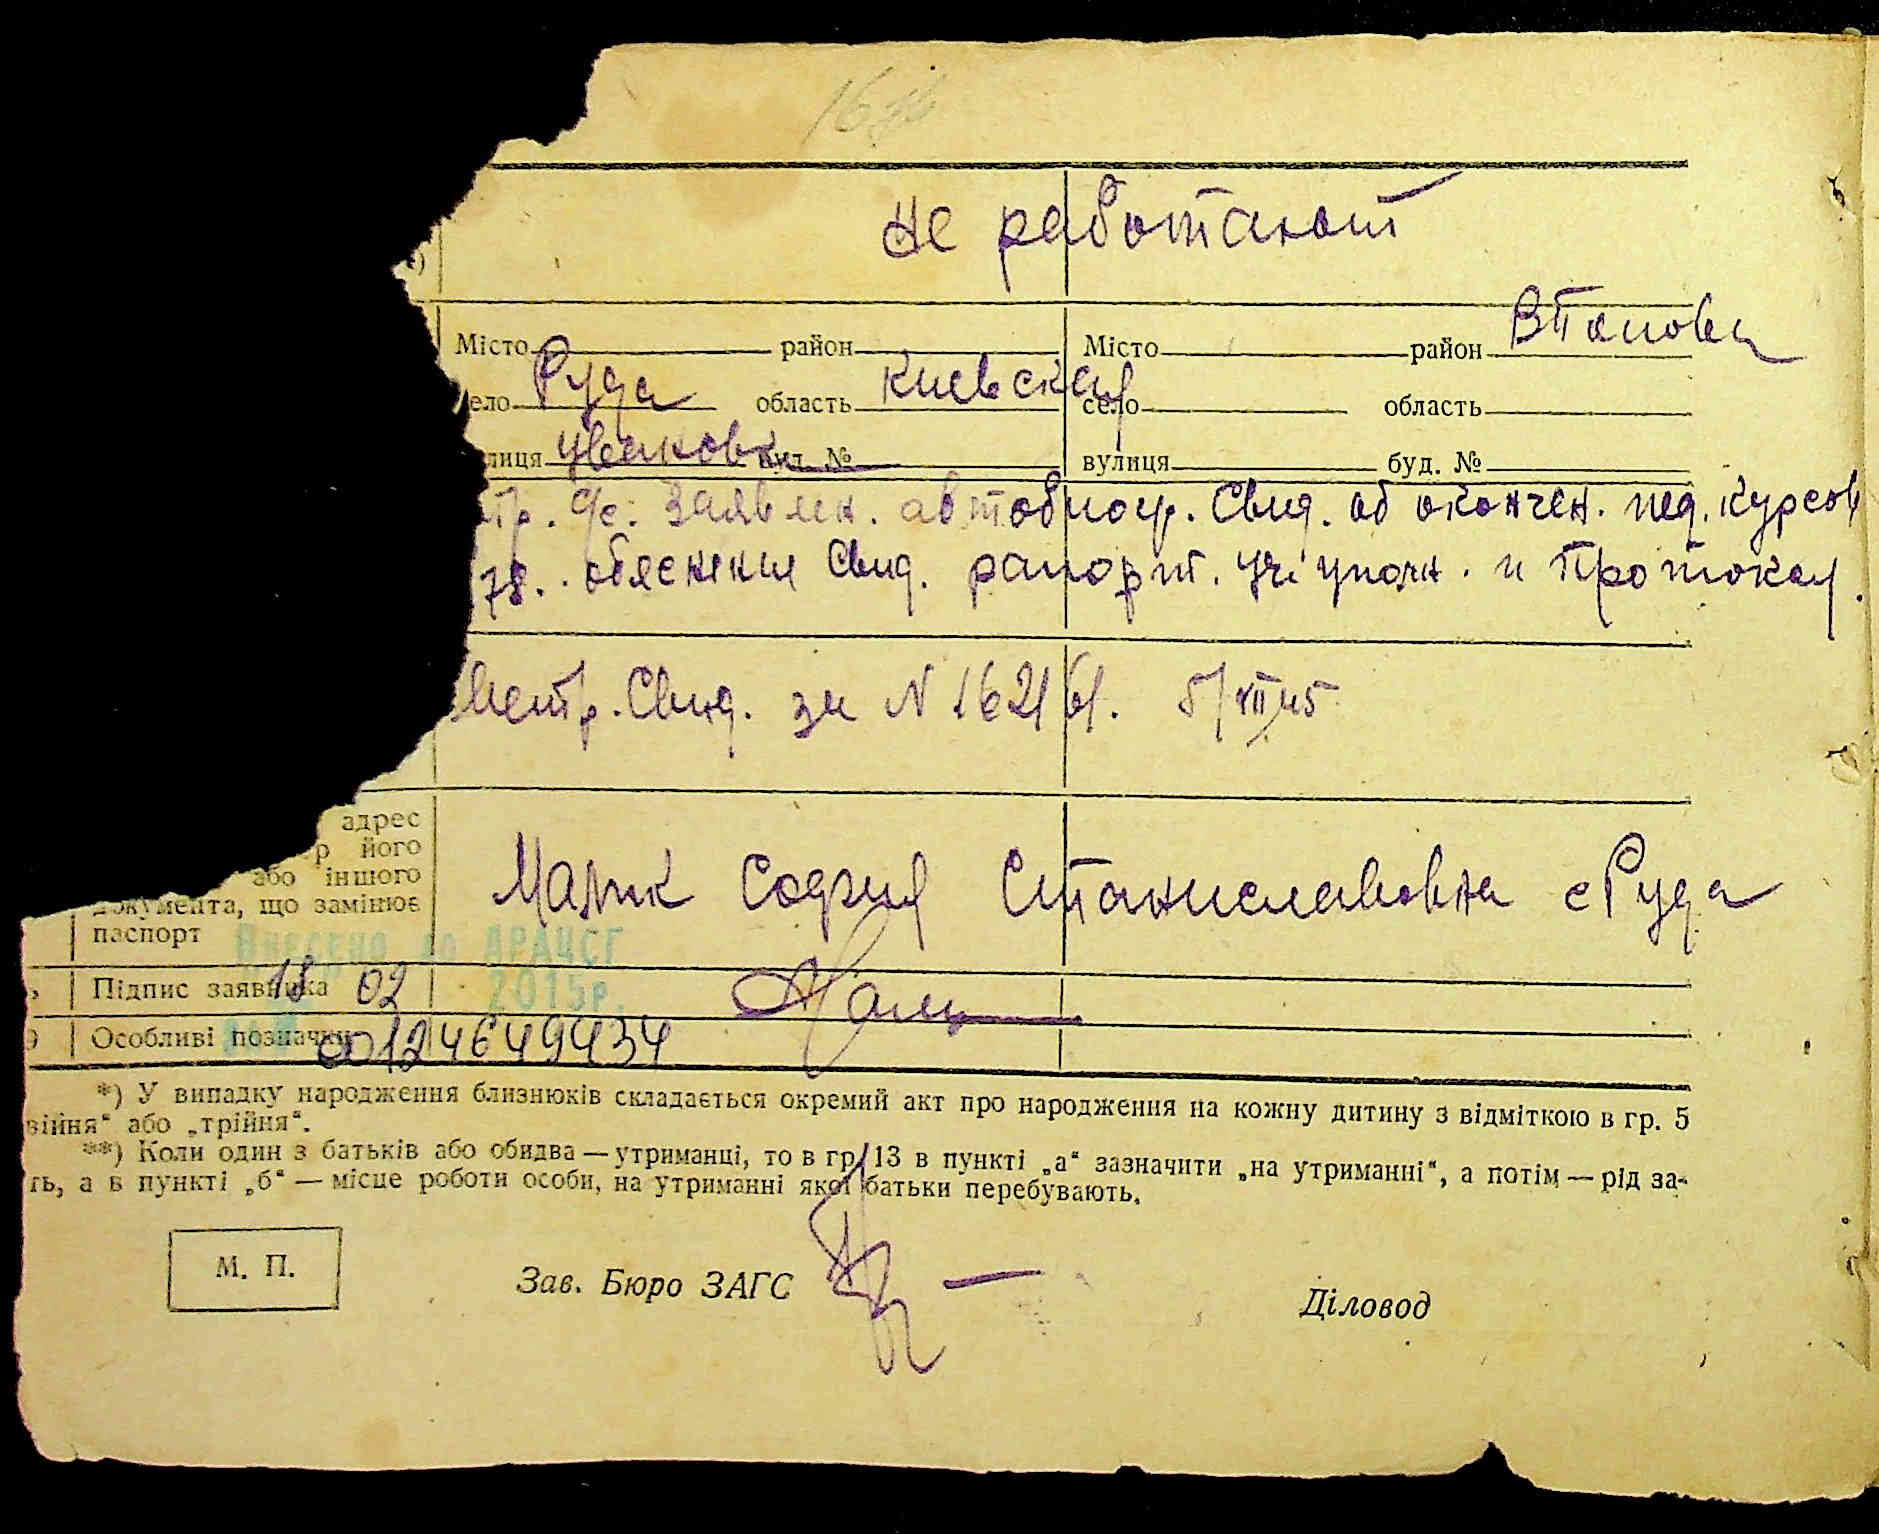 не работают
Місто район Місто район
село Руда область Киевская село область
лиця буд. № вулиця буд. №
заявлен. автобиогр. Свид. об окончен. пед. курсов
78. обяснения Свид. рапорт. и протокол.
Метр. Свид. за N 162161. 5/VII 45
адрес
р його
або іншого
документа, що замінює
паспорт
Малик София Станиславовна с Руда
Внесено до ДРАЦСГ
18 02 2015р.
Підпис заявника
Особливі позначки
00124649434
*) У випадку народження близнюків складається окремий акт про народження на кожну дитину з відміткою в гр. 5
війня“ або „трійня“.
**) Коли один з батьків або обидва — утриманці, то в гр. 13 в пункті „а“ зазначити „на утриманні“, а потім — рід за-
ть, а в пункті „б“ — місце роботи особи, на утриманні якої батьки перебувають.
М. П.
Зав. Бюро ЗАГС
Діловод